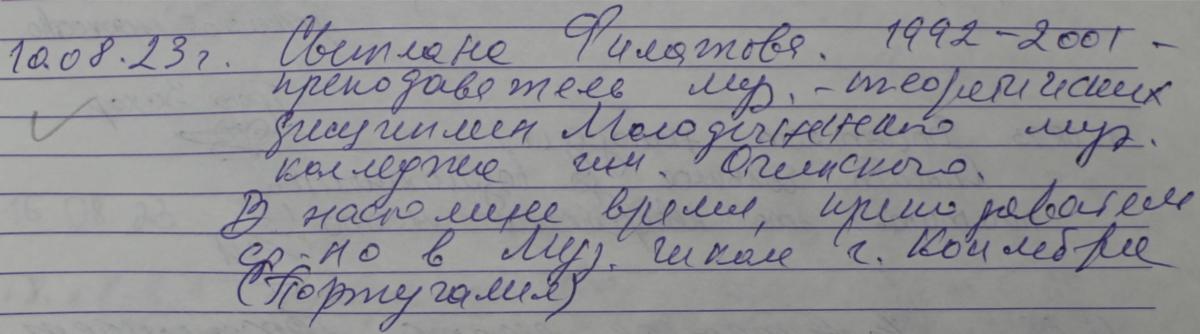 10.08.23г. Светлана Филатова. 1992-2001 -
преподаватель муз.-теоретических
дисциплин Молодечненского муз.
колледжа им. Огинского.
В настояще время, преподаватель
ф-но в муз. школе г. Коимбра
(Португалия)